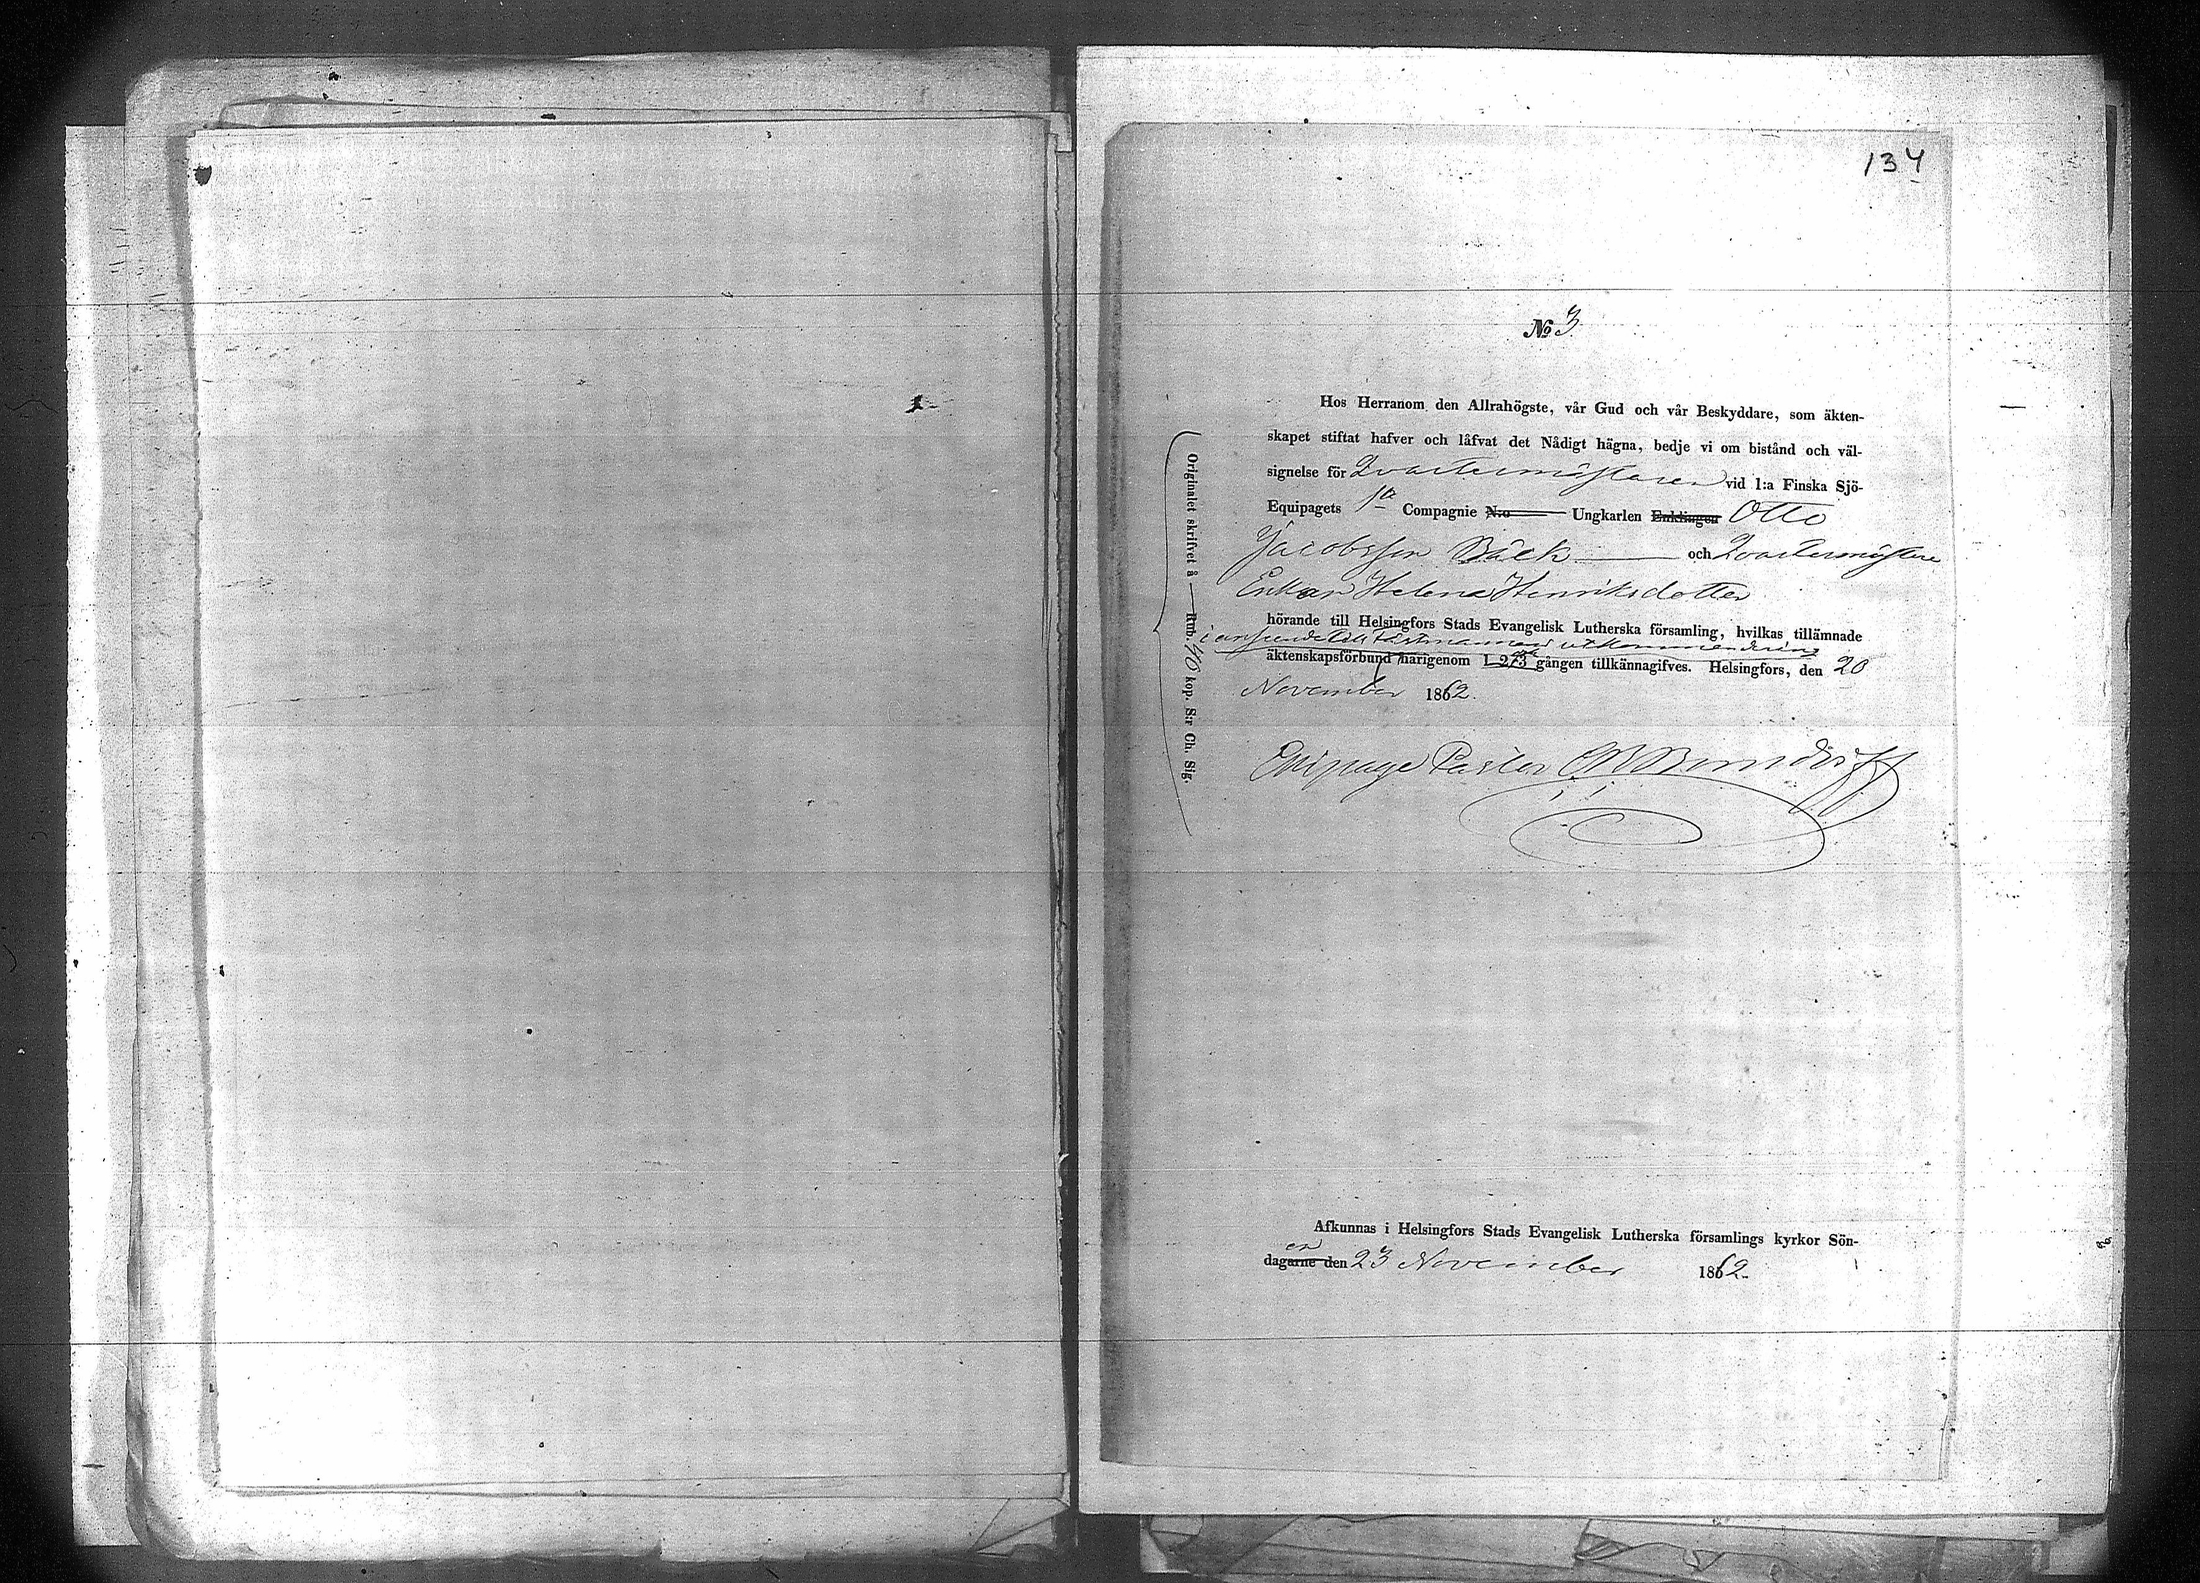 134
No 3
Hos Herranom den Allrahögste, vår Gud och vår Beskyddare, som äkten-
skapet stiftat hafver och låfvat det Nådigt hägna, bedje vi om bistånd och väl-
signelse för Qvartermästaren vid 1:a Finska Sjö-
Equipagets 1a Compagnie N:o Ungkarlen Enklingen Otto
Jacobsson Bäck och Qvartermästare
Enkan Helena Henriksdotter
hörande till Helsingfors Stads Evangelisk Lutherska församling, hvilkas tillämnade
i anseende till fästmannens utkommendering
äktenskapsförbund härigenom 1 2 3 gången tillkännagifves. Helsingfors, den 20
November 1862.
Equipage Pastor
Originalet skrifvet å Rub. 40 kop. S:r Ch. Sig.
Afkunnas i Helsingfors Stads Evangelisk Lutherska församlings kyrkor Sön-
en
dagarne den 23 November 1862.